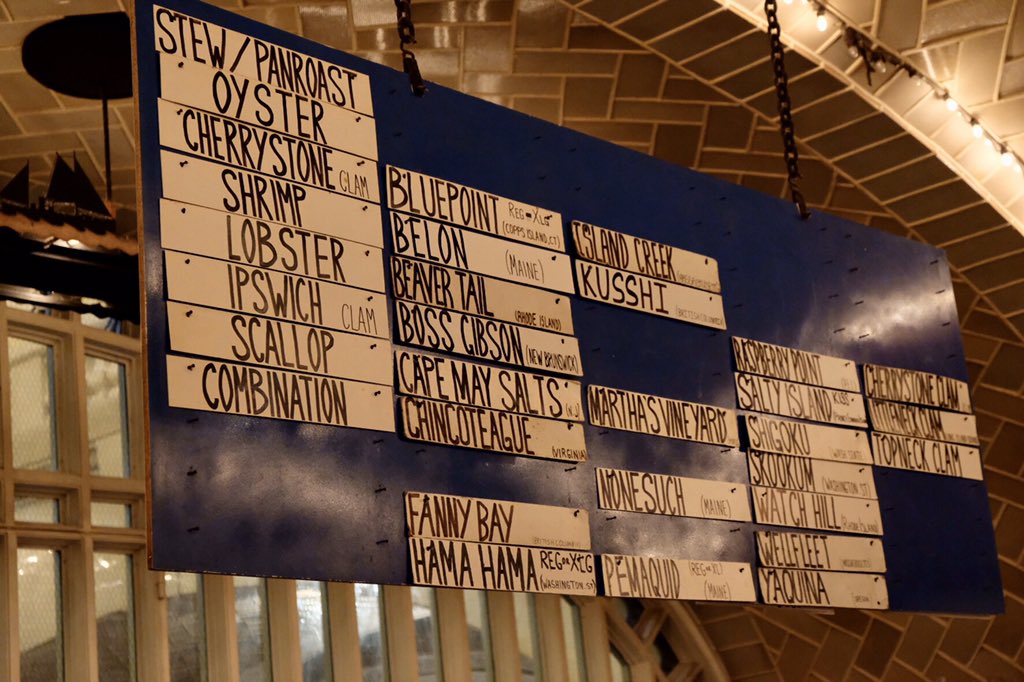 STEW/PANROAST
OYSTER
CHERRYSTONE CLAM
SHRIMP
LOBSTER
IPSWICH CLAM
SCALLOP
COMBINATION
BLUEPOINT REG OR XLG (COPPS ISLAND, CT)
BELON (MAINE)
BEAVER TAIL (RHODE ISLAND)
BOSS GIBSON (NEW BRUNSWICK)
CAPE MAY SALTS (N.J)
CHINCOTEAGUE (VIRGINIA)
FANNY BAY (BRITISH COLUMBIA)
HAMA HAMA REG OR XLG (WASHINGTON.ST)
ISLAND CREEK
KUSSHI (BRITISH COLUMBIA)
MARTHAS VINEYARD
NONESUCH (MAINE)
PEMAQUID REG OR XL (MAINE)
RASPBERRY POINT
SALTY ISLAND
SHIGOKU (WASH STATE)
SKOOKUM (WASHINGTON ST)
WATCH HILL (RHODE ISLAND)
WELLFLEET (MASSACHUSETTS)
YAQUINA (OREGON)
CHERRYSTONE CLAM
LITTLENECK CLAM
TOPNECK CLAM